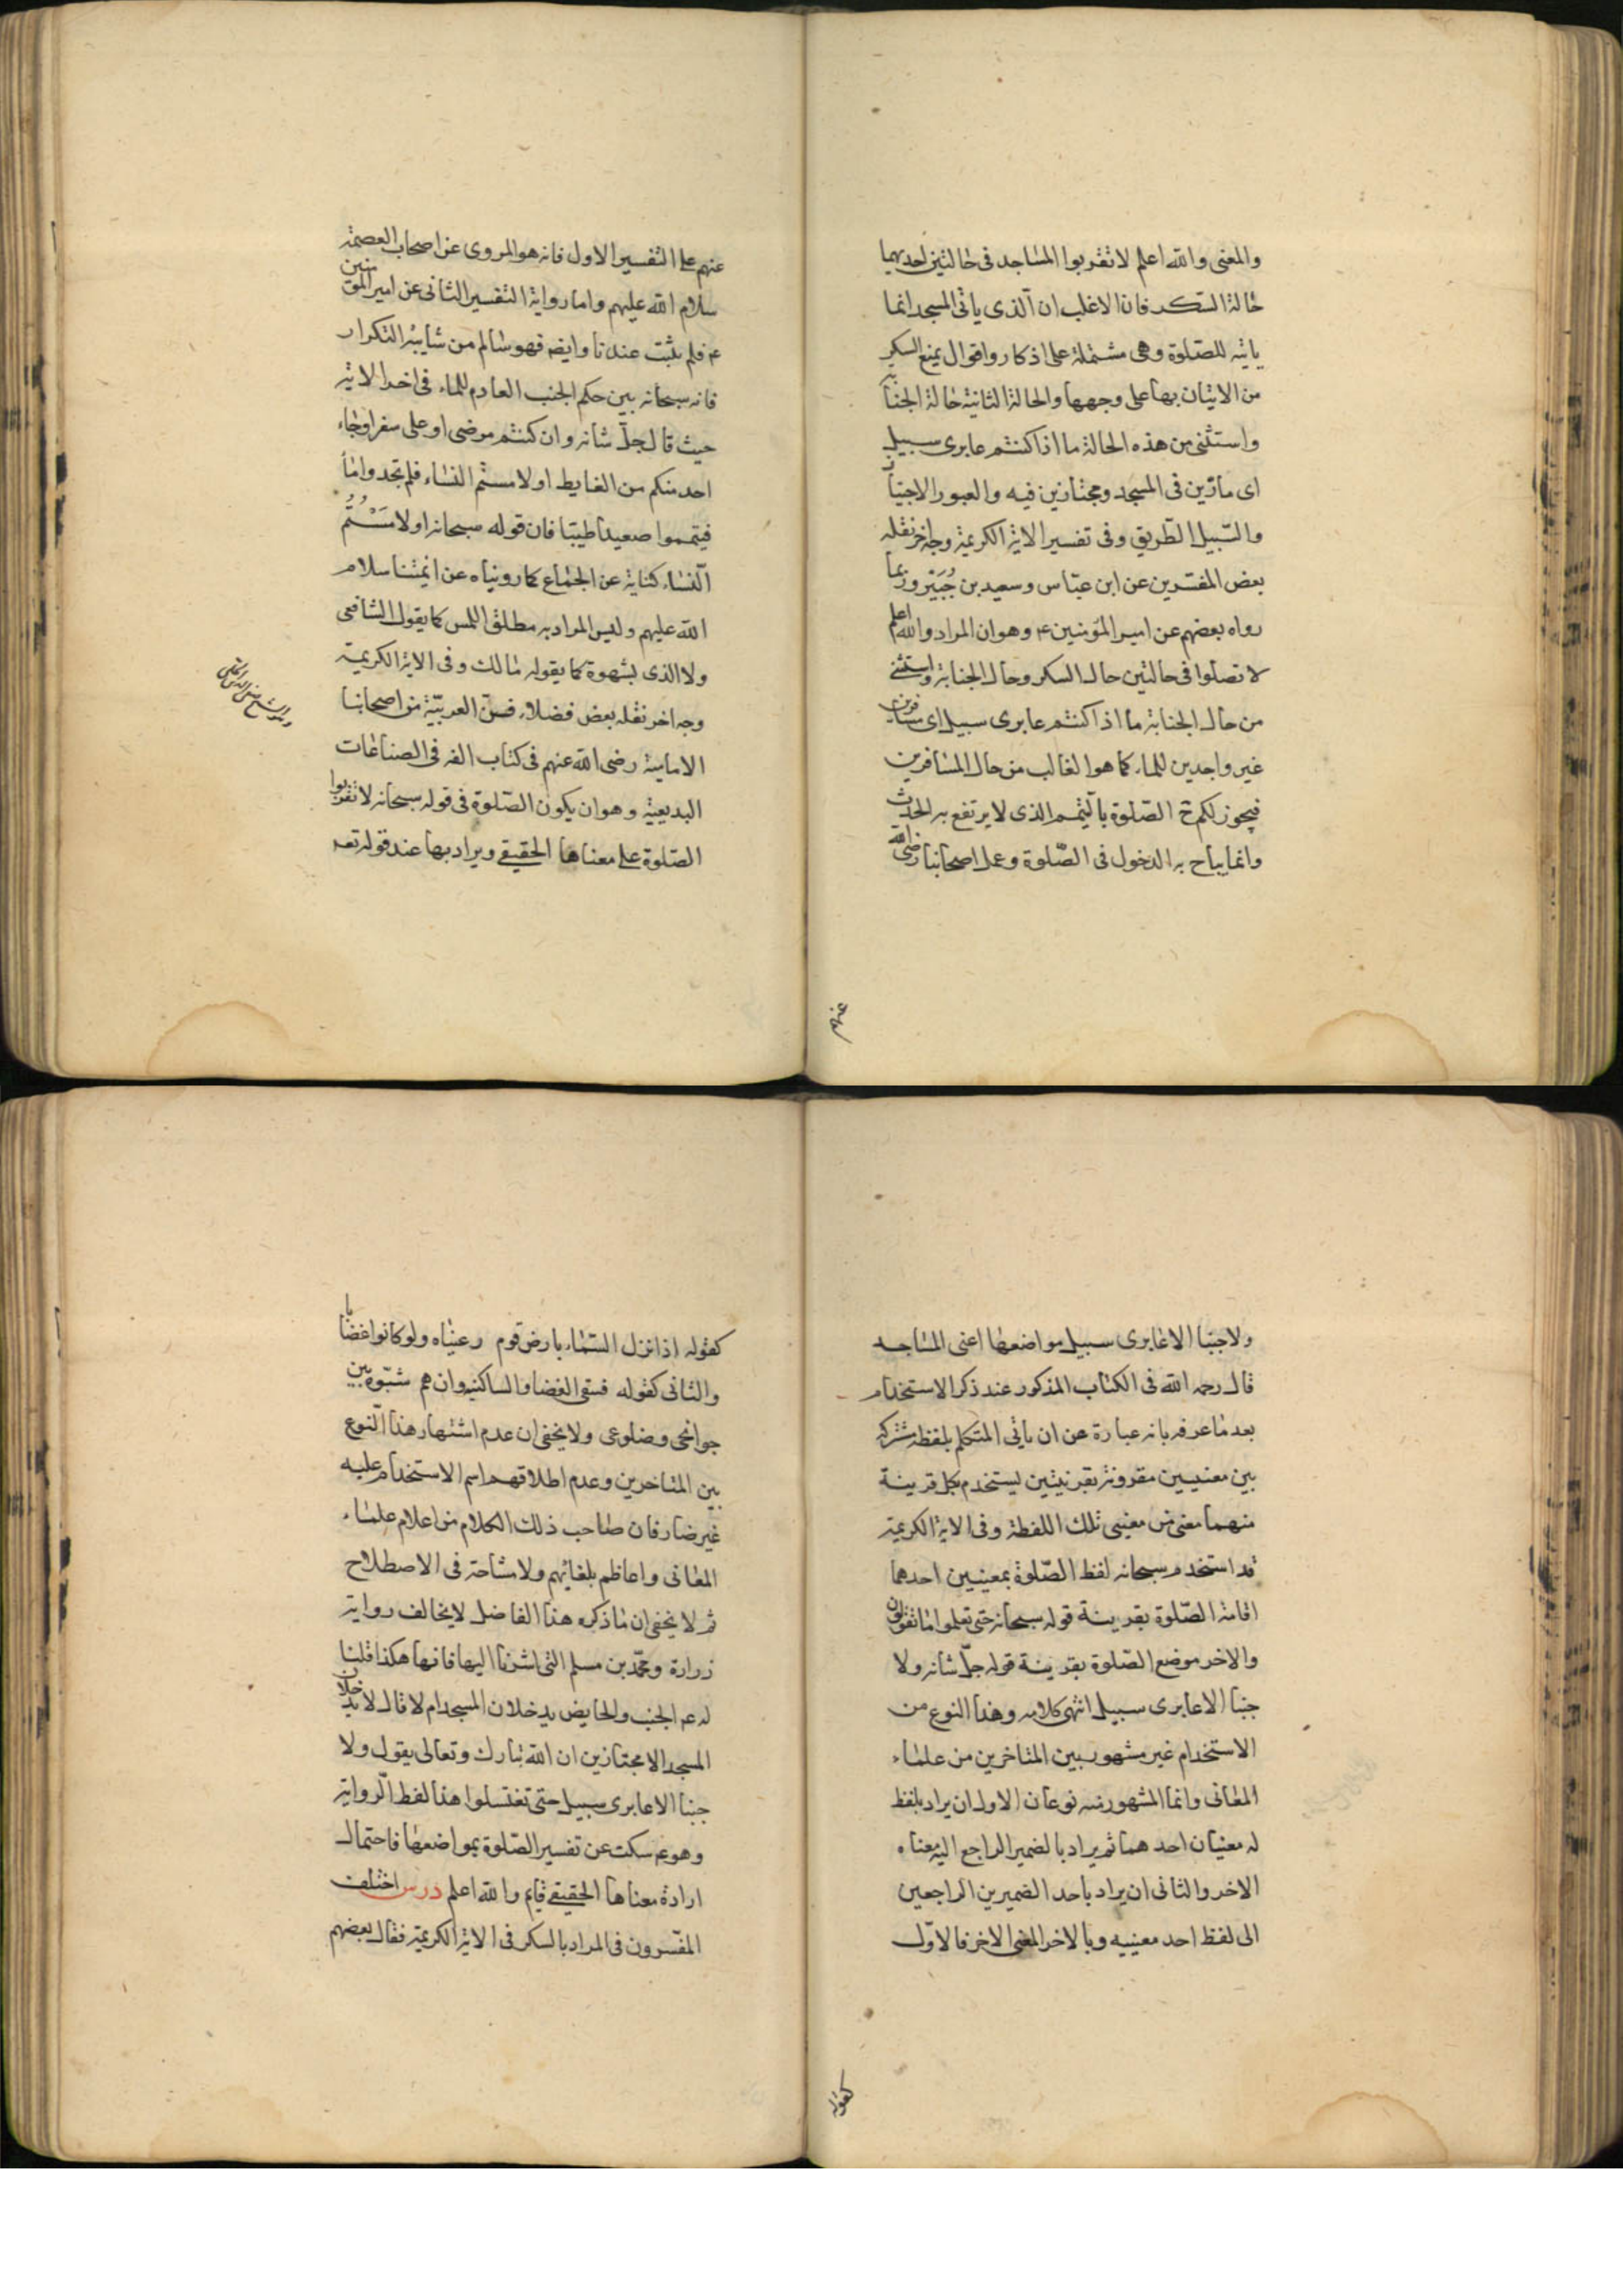 والمعنى والله اعلم لا تقربوا المساجد فى حالتين احديهما
حالة السكر فان الاغلب ان الذى ياتى المسجد انما
ياتيه للصلوة وهى مشتملة على اذكار واقوال يمنع السكر
من الاتيان بها على وجهها والحالة الثانية حالة الجنابة
واستثنى من هذه الحالة ما اذا كنتم عابرى سبيل
اى مارّين فى المسجد ومجتازين فيه والعبور الاجتياز
والسّبيل الطّريق وفى تفسير الاية الكريمة وجه اخر نقله
بعض المفسّرين عن ابن عبّاس وسعيد بن جُبَيْر وربما
رواه بعضهم عن امير المؤمنين ع وهو ان المراد والله اعلم
لا تصلوا فى حالتين حال السكر وحال الجنابة واستثنى
من حال الجنابة ما اذا كنتم عابرى سبيل اى مسافرين
غير واجدين للماء كما هو الغالب من حال المسافرين
فيجوز لكم ح الصّلوة بالتيمم الذى لا يرتفع به الحدث
وانما يباح به الدخول فى الصّلوة وعمل اصحابنا رضى الله
عنهم
عنهم على التفسير الاول فانه هو المروى عن اصحاب العصمة
سلام الله عليهم واما رواية التفسير الثانى عن امير المؤمنين
ع فلم يثبت عندنا وايضه فهو سالم من شايبة التكرار
فانه سبحانه بين حكم الجنب العادم للماء فى اخر الاية
حيث قال جلّ شانه وان كنتم مرضى او على سفر اوجاء
احد منكم من الغايط او لامستم النساء فلم تجدوا ماء
فيتمموا صعيدا طيبّا فان قوله سبحانه او لامَسْتُمُ
النّساء كناية عن الجماع كما رويناه عن ائمتنا سلام
الله عليهم وليس المراد به مطلق اللمس كما يقول الشافعى
ولا الذى بشهوة كما يقوله مالك وفى الاية الكريمة
وجه اخر نقله بعض فضلاء فنّ العربيّة من اصحابنا
الامامية رضى الله عنهم فى كتاب الفه فى الصناعات
البديعية وهو ان يكون الصّلوة فى قوله سبحانه لا تقربوا
الصّلوة على معناها الحقيقى ويراد بها عند قوله تعه
ولا جنبا الا عابرى سبيل مواضعها اعنى المساجد
قال رحمه الله فى الكتاب المذكور عند ذكر الاستخدام
بعد ما عرفه بانه عبارة عن ان ياتى المتكلم بلفظة مشتركة
بين معنيين مقرونة بقرينتين ليستخدم بكل قرينة
منهما معنى من معنيى تلك اللفظة وفى الاية الكريمة
قد استخدم سبحانه لفظ الصّلوة بمعنيين احدهما
اقامة الصّلوة بقرينة قوله سبحانه حتى تعلموا ما تقولون
والاخر موضع الصّلوة بقرينة قوله جلّ شانه ولا
جنبا الا عابرى سبيل انتهى كلامه وهذا النوع من
الاستخدام غير مشهور بين المتاخرين من علماء
المعانى وانما المشهور منه نوعان الاول ان يراد بلفظ
له معنيان احدهما ثم يراد بالضمير الراجع اليه معناه
الاخر والثانى ان يراد باحد الضميرين الراجعين
الى لفظ احد معنييه وبالاخر المعنى الاخر فالاوّل
كقوله
كقوله اذا نزل السّماء بارض قوم رعيناه ولو كانوا غضابا
والثانى كقوله فسقى الغضا والساكنيه وان هم شبّوه بين
جوانحى وضلوعى ولا يخفى ان عدم اشتهار هذا النّوع
بين المتاخرين وعدم اطلاقهم اسم الاستخدام عليه
غير ضار فان صاحب ذلك الكلام من اعلام علماء
المعانى واعاظم بلغائهم ولا مشاحة فى الاصطلاح
ثم لا يخفى ان ما ذكره هذا الفاضل لا يخالف رواية
زرارة ومحمّد بن مسلم التى اشرنا اليها فانها هكذا قلنا
له عم الجنب والحايض يدخلان المسجد ام لا قال لا يدخلان
المسجد الا مجتازين ان الله تبارك وتعالى يقول ولا
جنبا الا عابرى سبيل حتى تغتسلوا هذا لفظ الرّواية
وهو عم سكت عن تفسير الصّلوة بمواضعها فاحتمال
ارادة معناها الحقيقى قايم والله اعلم درس اختلف
المفسّرون فى المراد بالسكر فى الاية الكريمة فقال بعضهم